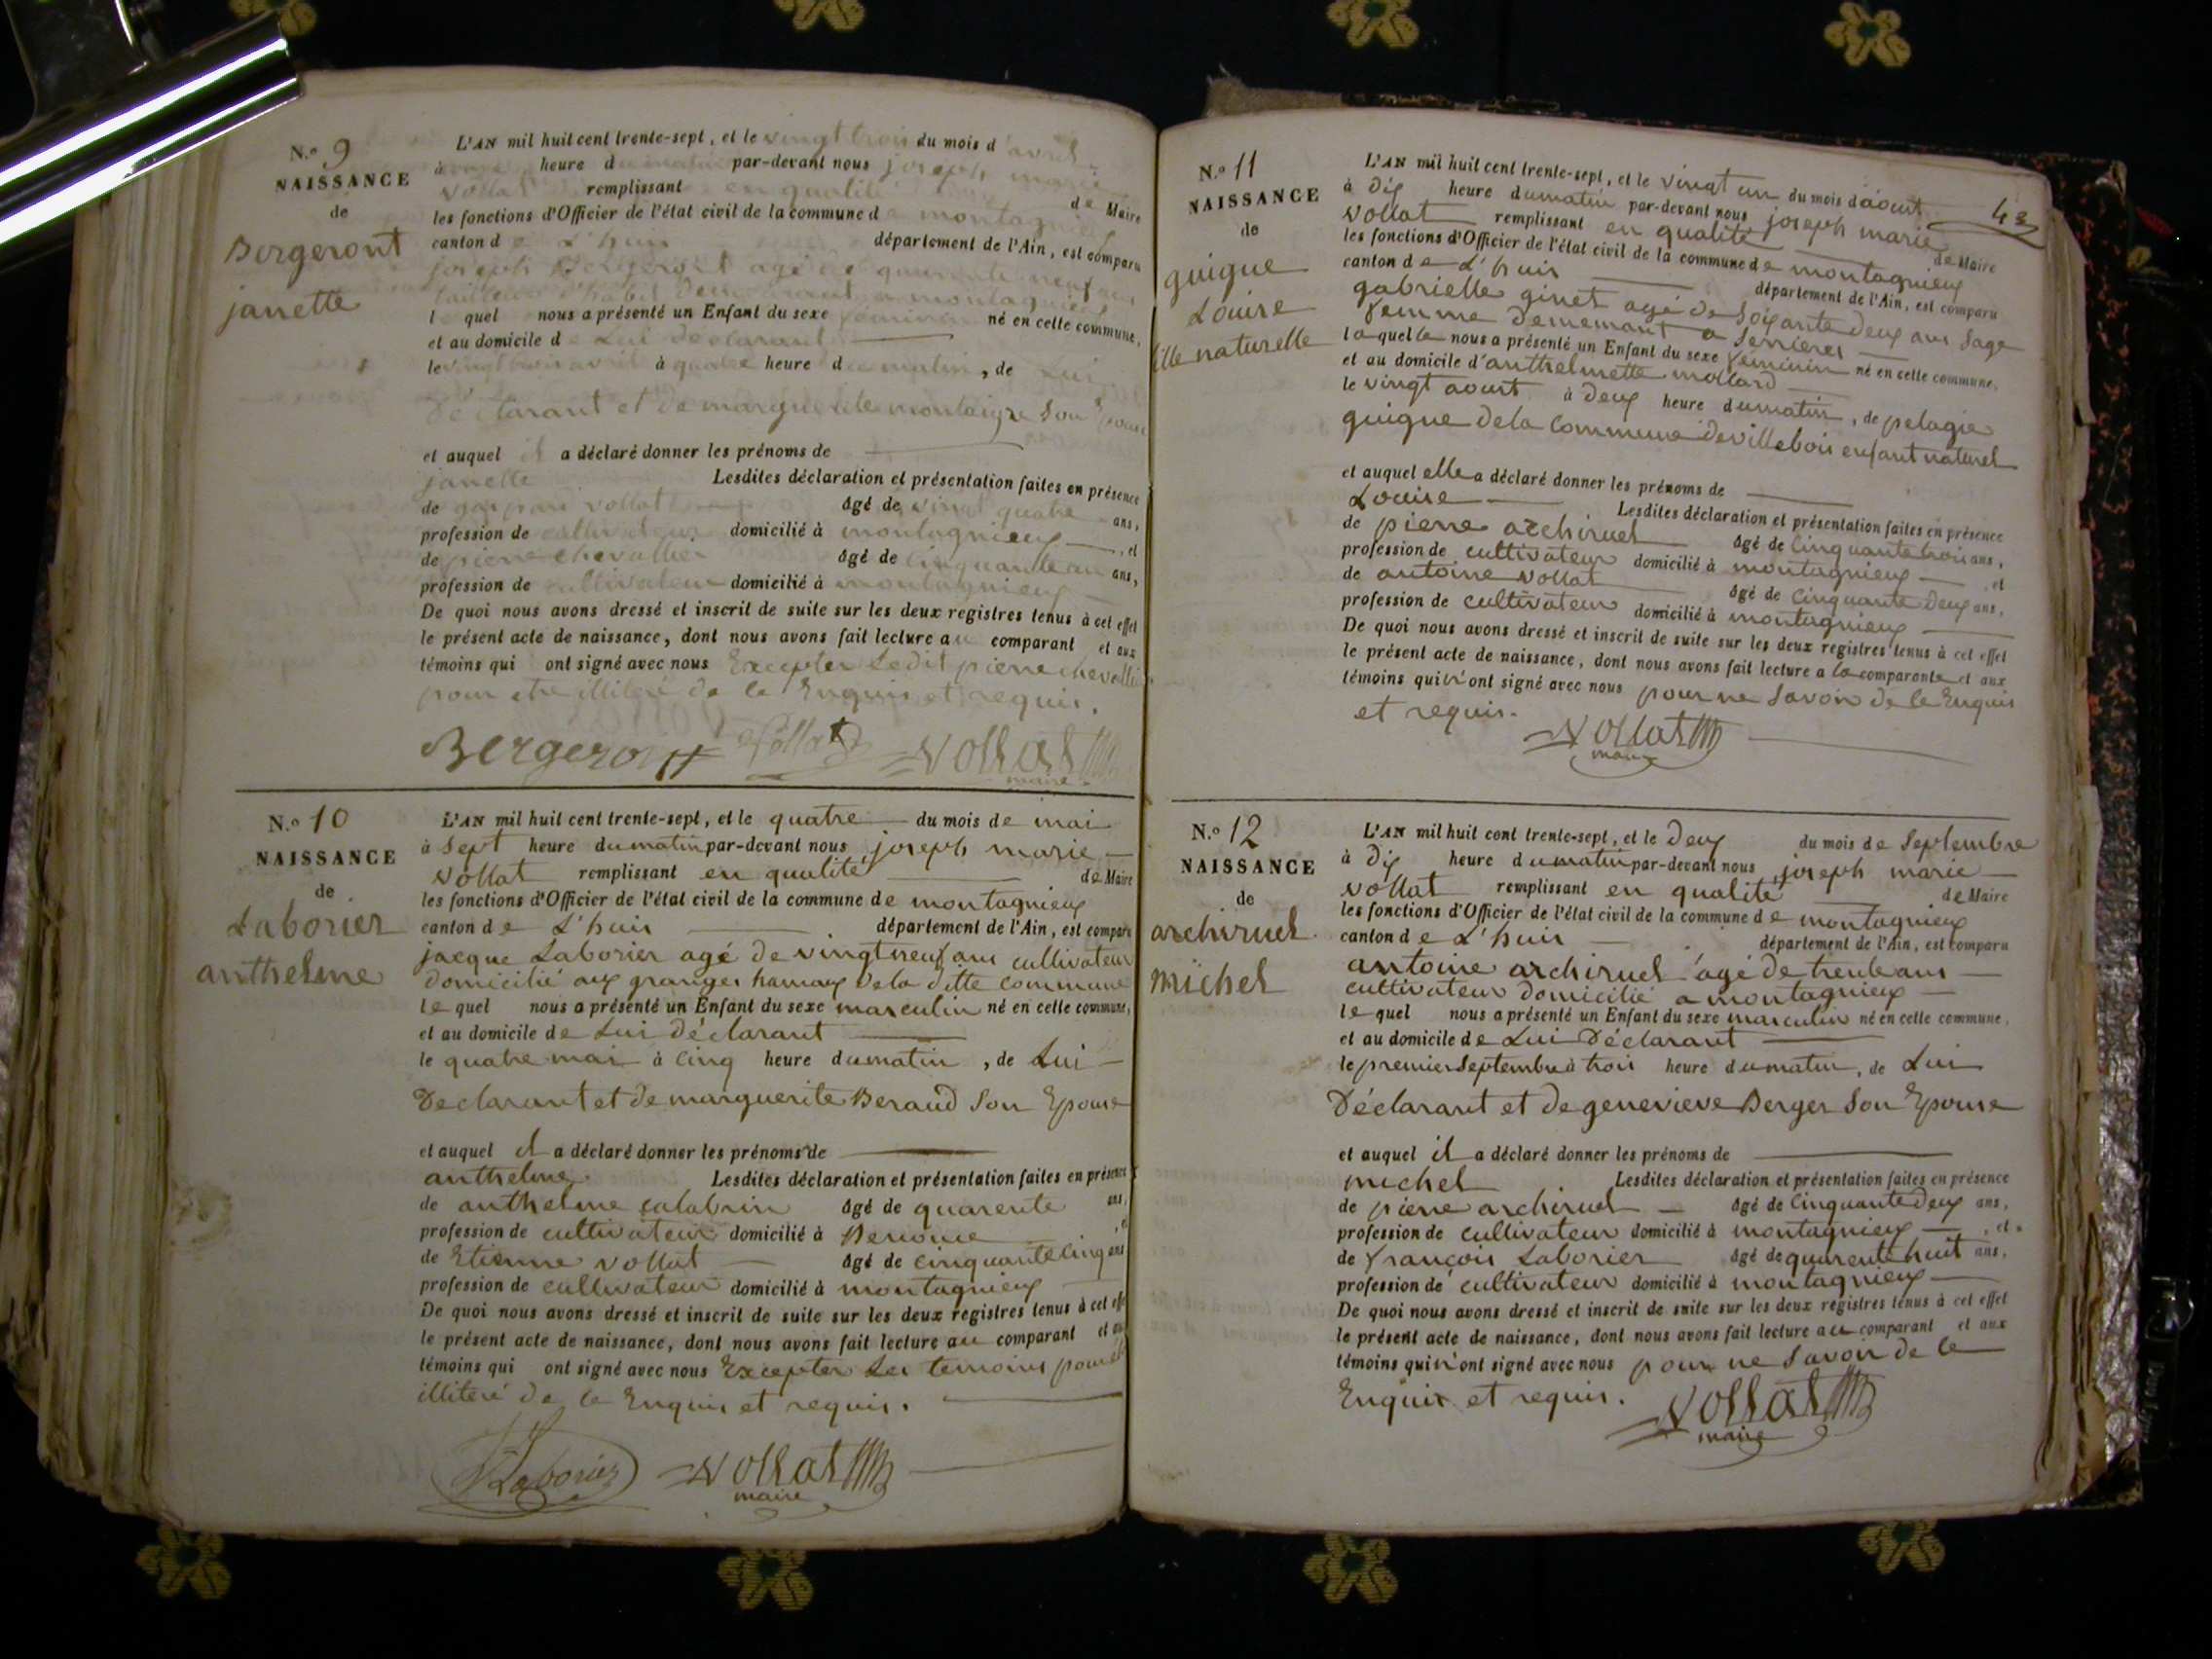 N.o 9
NAISSANCE
de
Bergeront
janette
L'AN mil huit cent trente-sept, et le vingt trois du mois d'avril
à heure du matin par-devant nous joseph marie
vollat remplissant en qualité de Maire
les fonctions d'Officier de l'état civil de la commune de montagnieu
canton de L'huis département de l'Ain, est comparu
joseph Bergeront agé de quarente neuf ans
tailleur d'habit demeurant a montagnieux
lequel nous a présenté un Enfant du sexe feminin né en cette commune,
et au domicile de Lui déclarant
le vingt trois avril à quatre heure du matin, de Lui
Déclarant et de marguerite montaigre Son Epouse
et auquel il a déclaré donner les prénoms de
janette Lesdites déclaration et présentation faites en présence
de gaspard vollat âgé de vingt quatre ans,
profession de cultivateur domicilié à montagnieux, et
de pierre chevallier âgé de cinquante un ans,
profession de cultivateur domicilié à montagnieux
De quoi nous avons dressé et inscrit de suite sur les deux registres tenus à cet effet
le présent acte de naissance, dont nous avons fait lecture au comparant et aux
témoins qui ont signé avec nous Excepter Ledit pierre chevallier
pour etre illiteré de ce Enquis et requis.
Bergeront Vollat Vollat
maire
N.o 10
NAISSANCE
de
Laborier
anthelme
L'AN mil huit cent trente-sept, et le quatre du mois de mai
à Sept heure du matin par-devant nous joseph marie
vollat remplissant en qualité de Maire
les fonctions d'Officier de l'état civil de la commune de montagnieux
canton de L'huis département de l'Ain, est comparu
jacque Laborier agé de vingtneuf ans cultivateur
domicilié aux granges hamaux dela ditte commune
lequel nous a présenté un Enfant du sexe masculin né en cette commune,
et au domicile de Lui déclarant
le quatre mai à cinq heure du matin, de Lui
Declarant et de marguerite Beraud Son Epouse
et auquel il a déclaré donner les prénoms de
anthelme Lesdites déclaration et présentation faites en présence
de anthelme calabrin âgé de quarente ans,
profession de cultivateur domicilié à Benonce, et
de Etienne vollat âgé de cinquante cinq ans
profession de cultivateur domicilié à montagnieux
De quoi nous avons dressé et inscrit de suite sur les deux registres tenus à cet effet
le présent acte de naissance, dont nous avons fait lecture au comparant et aux
témoins qui ont signé avec nous Excepter Les temoins pour etre
illiteré de ce Enquis et requis.
Laborier Vollat
maire
43
N.o 11
NAISSANCE
de
guigue
Louise
fille naturelle
L'AN mil huit cent trente-sept, et le vingt un du mois d'aoust
à dix heure du matin par-devant nous joseph marie
vollat remplissant en qualité de Maire
les fonctions d'Officier de l'état civil de la commune de montagnieux
canton de L'huis département de l'Ain, est comparu
gabrielle ginet agé de Soixante deux ans Sage
femme demeurant a Serrieres
laquelle nous a présenté un Enfant du sexe féminin né en cette commune,
et au domicile d'anthelmette mollard
le vingt aoust à deux heure du matin, de pelagie
guigue dela commune de villebois enfant naturel
et auquel elle a déclaré donner les prénoms de
Louise Lesdites déclaration et présentation faites en présence
de pierre archiruel âgé de cinquante trois ans,
profession de cultivateur domicilié à montagnieux et
de antoine vollat âgé de cinquante deux ans,
profession de cultivateur domicilié à montagnieux
De quoi nous avons dressé et inscrit de suite sur les deux registres tenus à cet effet
le présent acte de naissance, dont nous avons fait lecture a la comparante et aux
témoins qui n'ont signé avec nous pour ne Savoir de ce Enquis
et requis.
Vollat
maire
N.o 12
NAISSANCE
de
archiruel
michel
L'AN mil huit cent trente-sept, et le deux du mois de Septembre
à dix heure du matin par-devant nous joseph marie
vollat remplissant en qualité de Maire
les fonctions d'Officier de l'état civil de la commune de montagnieux
canton de L'huis département de l'Ain, est comparu
antoine archiruel agé de trente ans
cultivateur domicilié a montagnieux
lequel nous a présenté un Enfant du sexe masculin né en cette commune,
et au domicile de Lui Déclarant
le premier Septembre à trois heure du matin, de Lui
Déclarant et de genevieve Berger Son Epouse
et auquel il a déclaré donner les prénoms de
michel Lesdites déclaration et présentation faites en présence
de pierre archiruel âgé de cinquante deux ans,
profession de cultivateur domicilié à montagnieux, et
de françois Laborier âgé de quarente huit ans,
profession de cultivateur domicilié à montagnieux
De quoi nous avons dressé et inscrit de suite sur les deux registres tenus à cet effet
le présent acte de naissance, dont nous avons fait lecture au comparant et aux
témoins qui n'ont signé avec nous pour ne Savoir de ce
Enquis et requis.
Vollat
maire